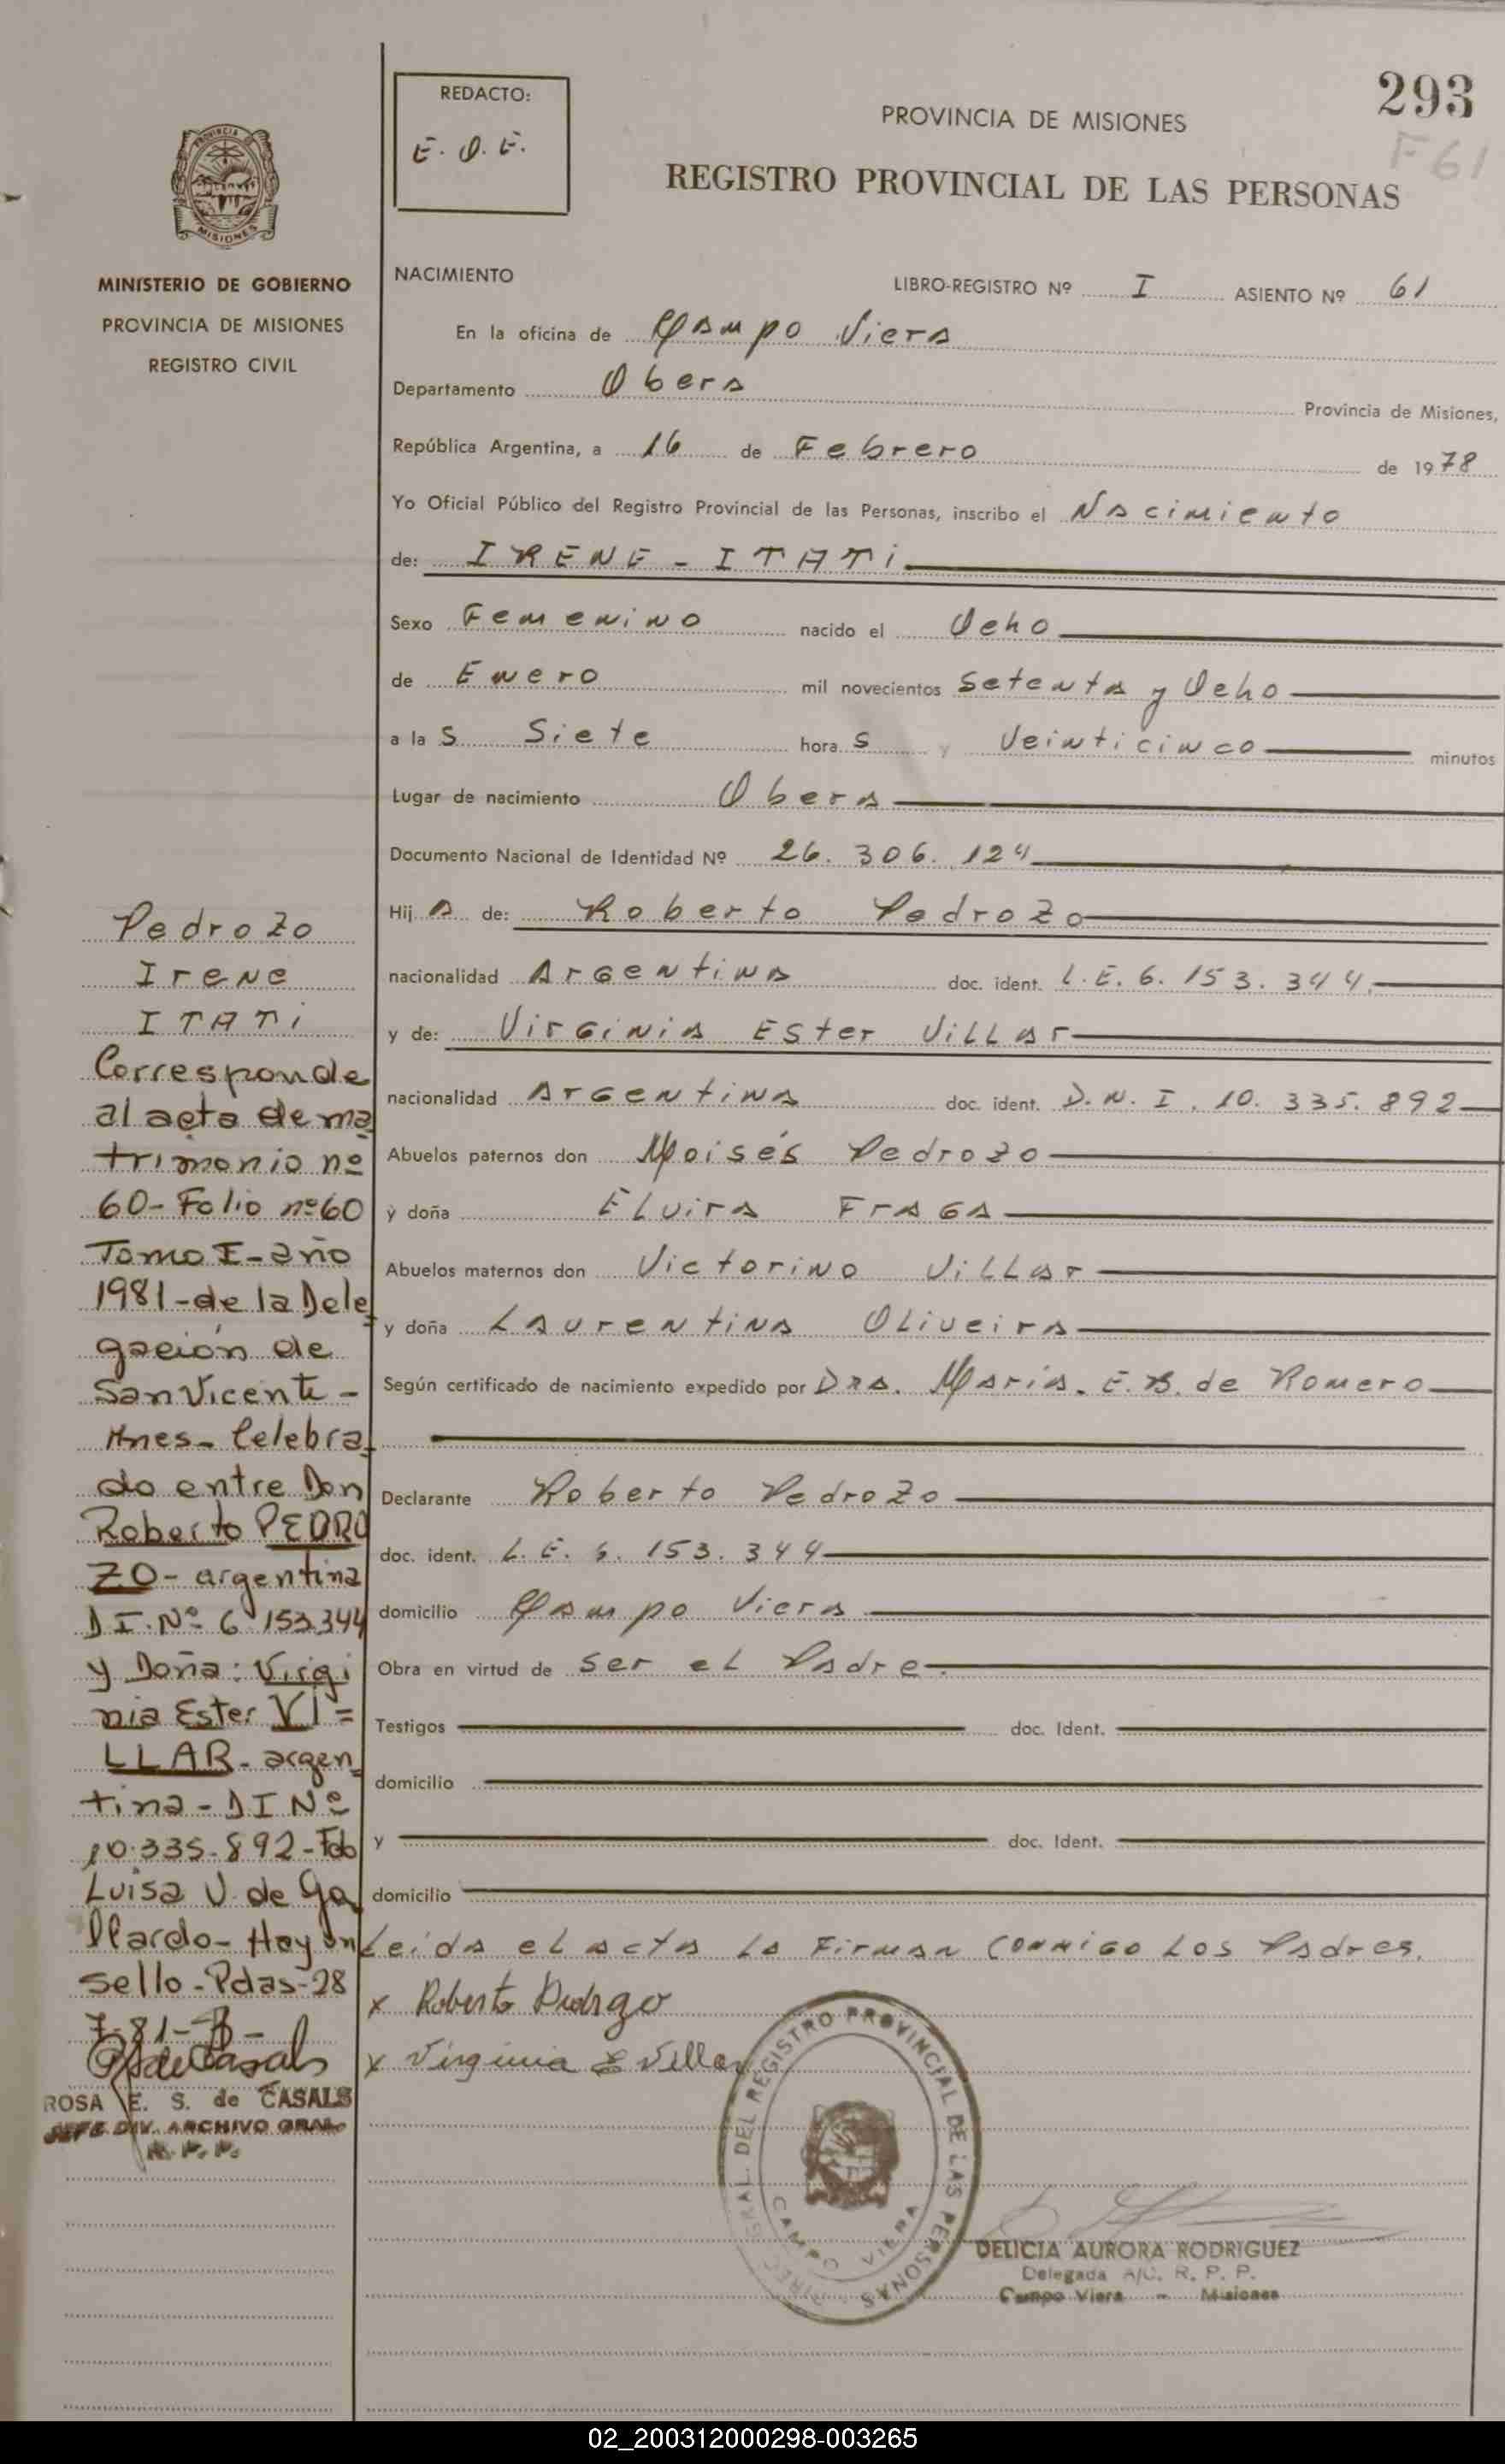 293
F 61
REDACTO:
E. O. E.
PROVINCIA DE MISIONES
REGISTRO PROVINCIAL DE LAS PERSONAS
PROVINCIA DE
MISIONES
MINISTERIO DE GOBIERNO
PROVINCIA DE MISIONES
REGISTRO CIVIL
NACIMIENTO
LIBRO-REGISTRO Nº I ASIENTO Nº 61
En la oficina de Campo Viera
Departamento Obera Provincia de Misiones,
República Argentina, a 16 de Febrero de 1978
Yo Oficial Público del Registro Provincial de las Personas, inscribo el Nacimiento
de: IRENE - ITATI
Sexo Femenino nacido el Ocho
de Enero mil novecientos Setenta y Ocho
a la s Siete hora s y Veinticinco minutos
Lugar de nacimiento Obera
Documento Nacional de Identidad Nº 26. 306. 124
Hij a de: Roberto Pedrozo
nacionalidad Argentina doc. ident. L. E. 6. 153. 344.
y de: Virginia Ester Villar
nacionalidad Argentina doc. ident. D. N. I. 10. 335. 892
Abuelos paternos don Moisés Pedrozo
y doña Elvira Fraga
Abuelos maternos don Victorino Villar
y doña Laurentina Oliveira
Según certificado de nacimiento expedido por Dra. Maria. E. B. de Romero
Declarante Roberto Pedrozo
doc. ident. L. E. 6. 153. 344
domicilio Campo Viera
Obra en virtud de ser el Padre.
Testigos doc. Ident.
domicilio
y doc. Ident.
domicilio
Leida el acta la Firman Conmigo los Padres.
x Roberto Pedrozo
x Virginia E Villar
DIREC. GRAL. DEL REGISTRO PROVINCIAL DE LAS PERSONAS
CAMPO VIERA
DELICIA AURORA RODRIGUEZ
Delegada A/C. R. P. P.
Campo Viera - Misiones
Pedrozo
Irene
ITATI
Corresponde
al acta de ma
trimonio nº
60- Folio nº 60
Tomo I - año
1981 - de la Dele
gación de
San Vicente -
Mnes- Celebra
do entre Don
Roberto PEDRO
ZO - argentina
DI. Nº 6 153344
y Doña: Virgi
nia Ester VI=
LLAR - argen
tina - DI Nº
10.335.892 - Fdo
Luisa V. de Ga
llardo - Hay un
sello - Pdas - 28
7-81-
ROSA E. S. de CASALS
JEFE DIV. ARCHIVO GRAL.
R. P. P.
02_200312000298-003265